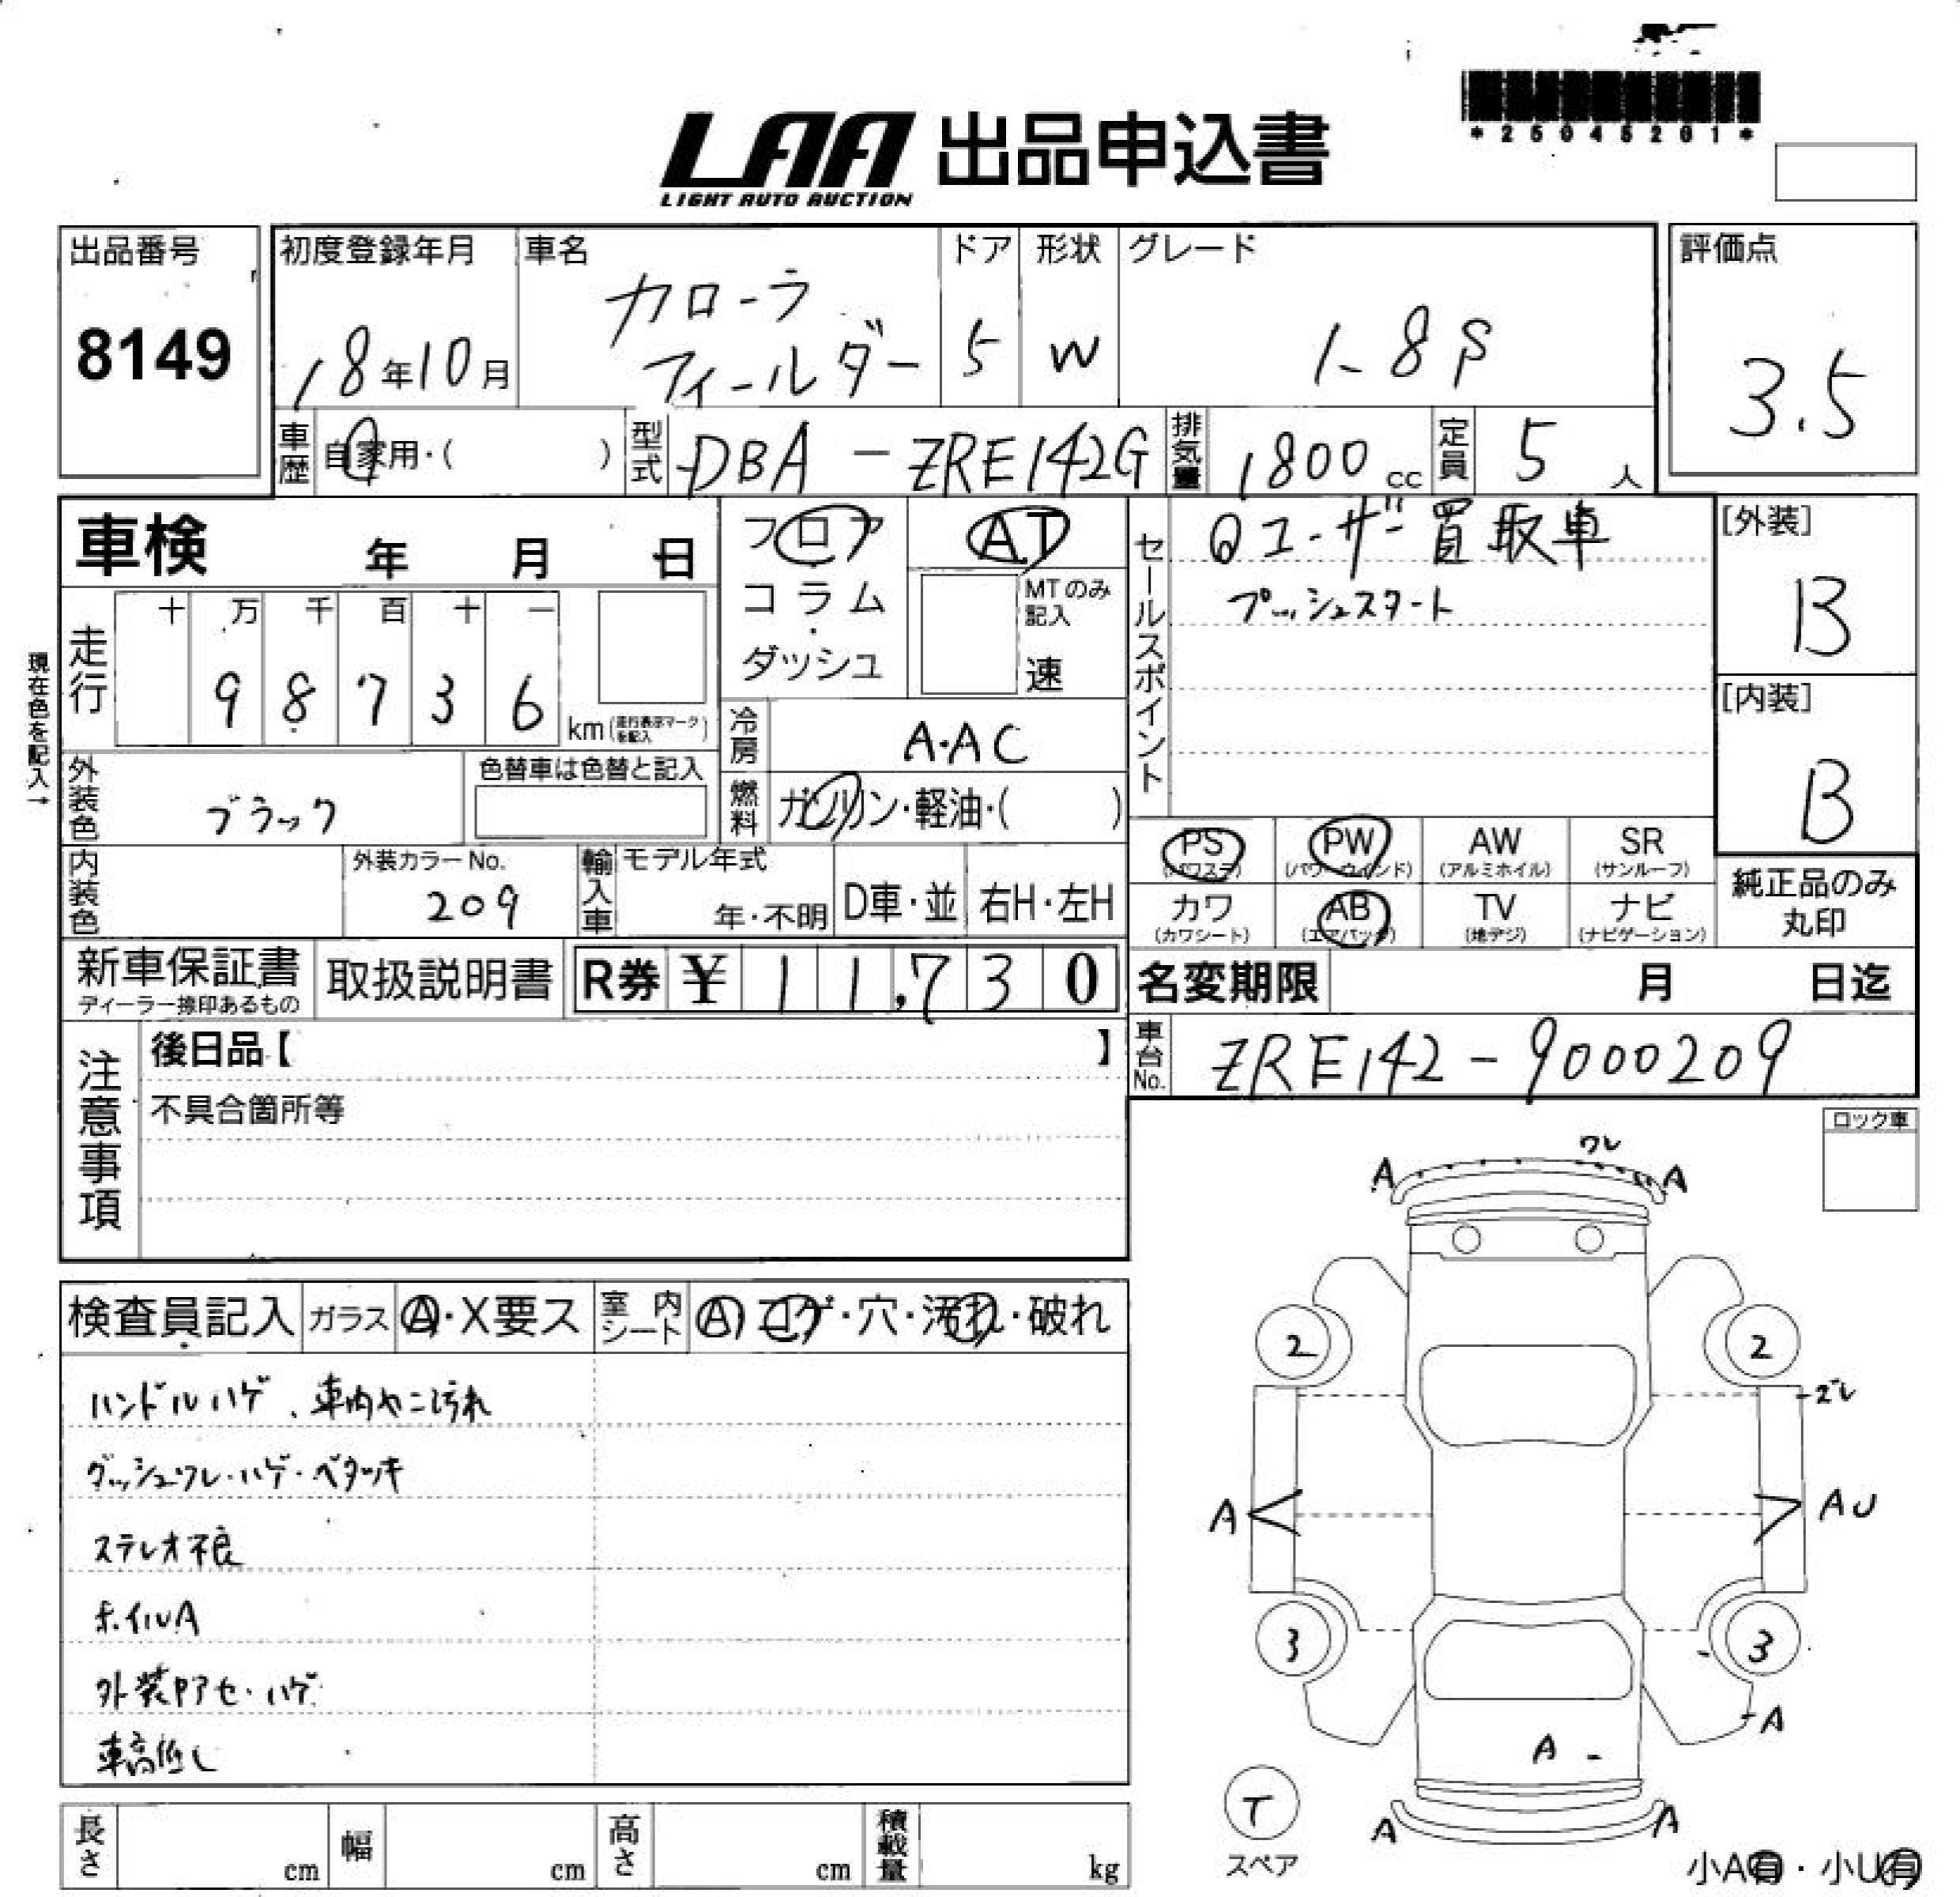 *25045201*
LAA 出品申込書
LIGHT AUTO AUCTION
出品番号
8149
初度登録年月
18年10月
車名
カローラ
フィールダー
ドア
5
形状
W
グレード
1.8S
評価点
3.5
車歴
自家用・( )
型式
DBA-ZRE142G
排気量
1800cc
定員
5人
車検 年 月 日
フロア
・
コラム
・
ダッシュ
AT
MTのみ記入
速
セールスポイント
ユーザー買取車
プッシュスタート
[外装]
B
[内装]
B
現在色を記入→
走行
十 万 千 百 十 一
9 8 7 3 6 km(走行表示マークを記入)
冷房
A・AC
外装色
ブラック
色替車は色替と記入
燃料
ガソリン・軽油・( )
PS
(パワステ)
PW
(パワーウィンド)
AW
(アルミホイル)
SR
(サンルーフ)
カワ
(カワシート)
AB
(エアバッグ)
TV
(地デジ)
ナビ
(ナビゲーション)
純正品のみ
丸印
内装色
外装カラーNo.
209
輸入車
モデル年式
年・不明
D車・並
右H・左H
新車保証書
ディーラー捺印あるもの
取扱説明書
R券 ¥11,730
名変期限 月 日迄
車台No.
ZRE142-9000209
注意事項
後日品【 】
不具合箇所等
ロック車
検査員記入
ガラス
A・X要ス
室内シート
A コゲ・穴・汚れ・破れ
ハンドルハゲ、車内ヤニ汚れ
ダッシュワレ・ハゲ・ベタツキ
ステレオ不良
ホイルA
外装色アセ・ハゲ
車高低し
ワレ
A A
2 2
A AU
3 3
A
A
T
スペア
A A
小A有・小U有
長さ cm
幅 cm
高さ cm
積載量 kg